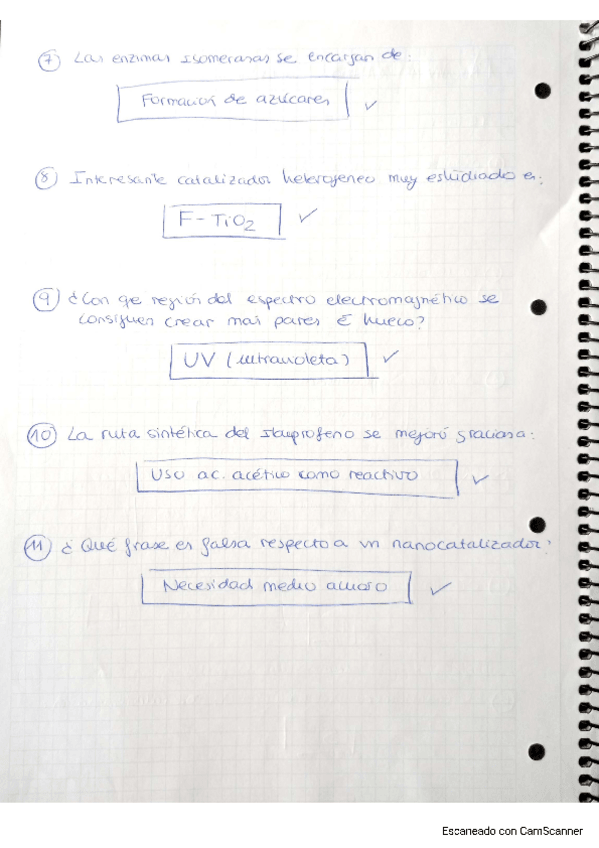 7 Las enzimas Isomerasas se encargan de:
Formación de azúcares ✓
8 Interesante catalizador heterogéneo muy estudiado es:
F-TiO2 ✓
9 ¿Con qe región del espectro electromagnético se
consiguen crear mas pares e hueco?
UV (ultravioleta) ✓
10 La ruta sintética del Ibuprofeno se mejoró gracias a:
Uso ac. acético como reactivo ✓
11 ¿Qué frase es falsa respecto a un nanocatalizador?
Necesidad medio acuoso ✓
Escaneado con CamScanner